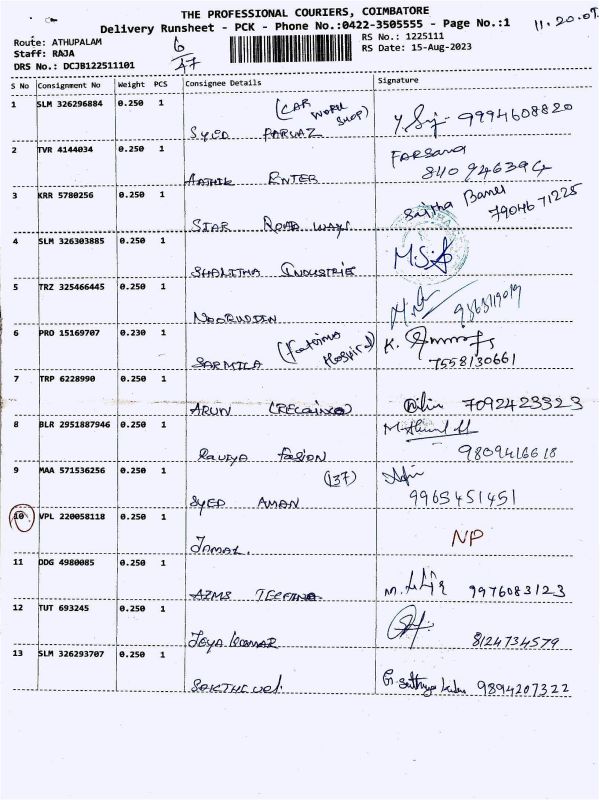 THE PROFESSIONAL COURIERS, COIMBATORE
Delivery Runsheet - PCK - Phone No.:0422-3505555 - Page No.:1
Route: ATHUPALAM 6 RS No.: 1225111
Staff: RAJA 47 RS Date: 15-Aug-2023
DRS No.: DCJB122511101
S No Consignment No Weight PCS Consignee Details Signature
1 SLM 326296884 0.250 1 (CAR WORK SHOP)
SYED PARVAZ 9994608820
2 TVR 4144034 0.250 1 FARSANA
AATHIK ENTER 8110946394
3 KRR 5780256 0.250 1 Saitha Banu
STAR ROAD WAYS 7904671225
4 SLM 326303885 0.250 1
SHALITHA INDUSTRIES
5 TRZ 325466445 0.250 1
NOORUDDIN
6 PRO 15169707 0.230 1 (Fathima Hospital)
SARMILA 7558130661
7 TRP 6228990 0.250 1
ARUN 7092423323
8 BLR 2951887946 0.250 1
FASION 9809416618
9 MAA 571536256 0.250 1 (137)
SYED AMAN 9965451451
10 VPL 220058118 0.250 1
JAMAL. NP
11 DDG 4980085 0.250 1
AZMS 9976083123
12 TUT 693245 0.250 1
JEYA KUMAR 8124734579
13 SLM 326293707 0.250 1
SAKTHI VEL G. Sathya 9894207322